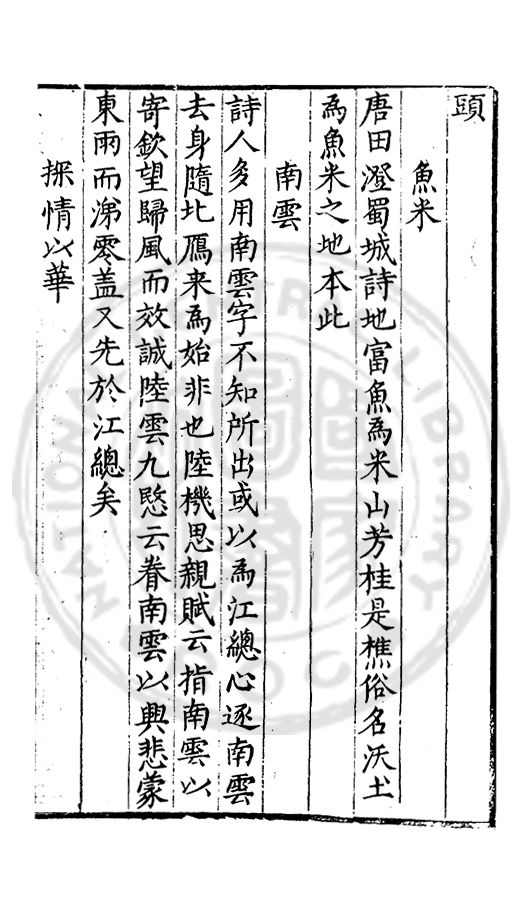 頭
魚米
唐田澄蜀城詩地富魚為米山芳桂是樵俗名沃土
為魚米之地本此
南雲
詩人多用南雲字不知所出或以為江總心逐南雲
去身隨北鴈来為始非也陸機思親賦云指南雲以
寄欽望歸風而效誠陸雲九愍云眷南雲以興悲蒙
東雨而涕零盖又先於江總矣
探情以華